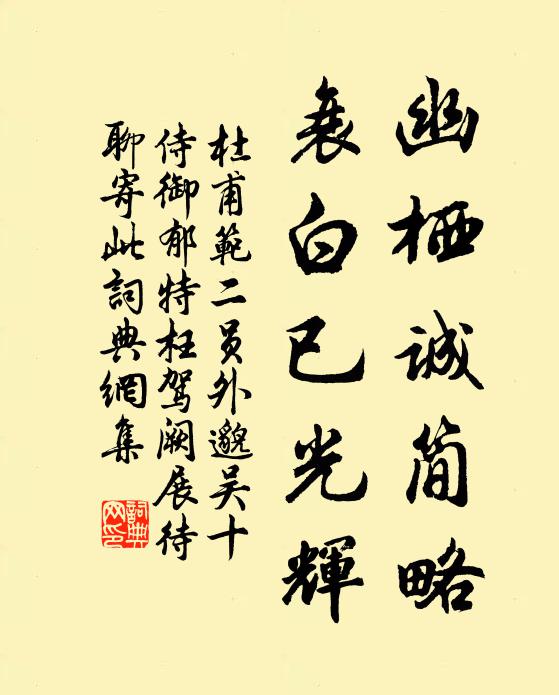 幽栖誠简略
衰白已光輝
杜甫範二员外邈吴十
侍御郁特枉駕阙展待
聊寄此詞典網集
詞典网印